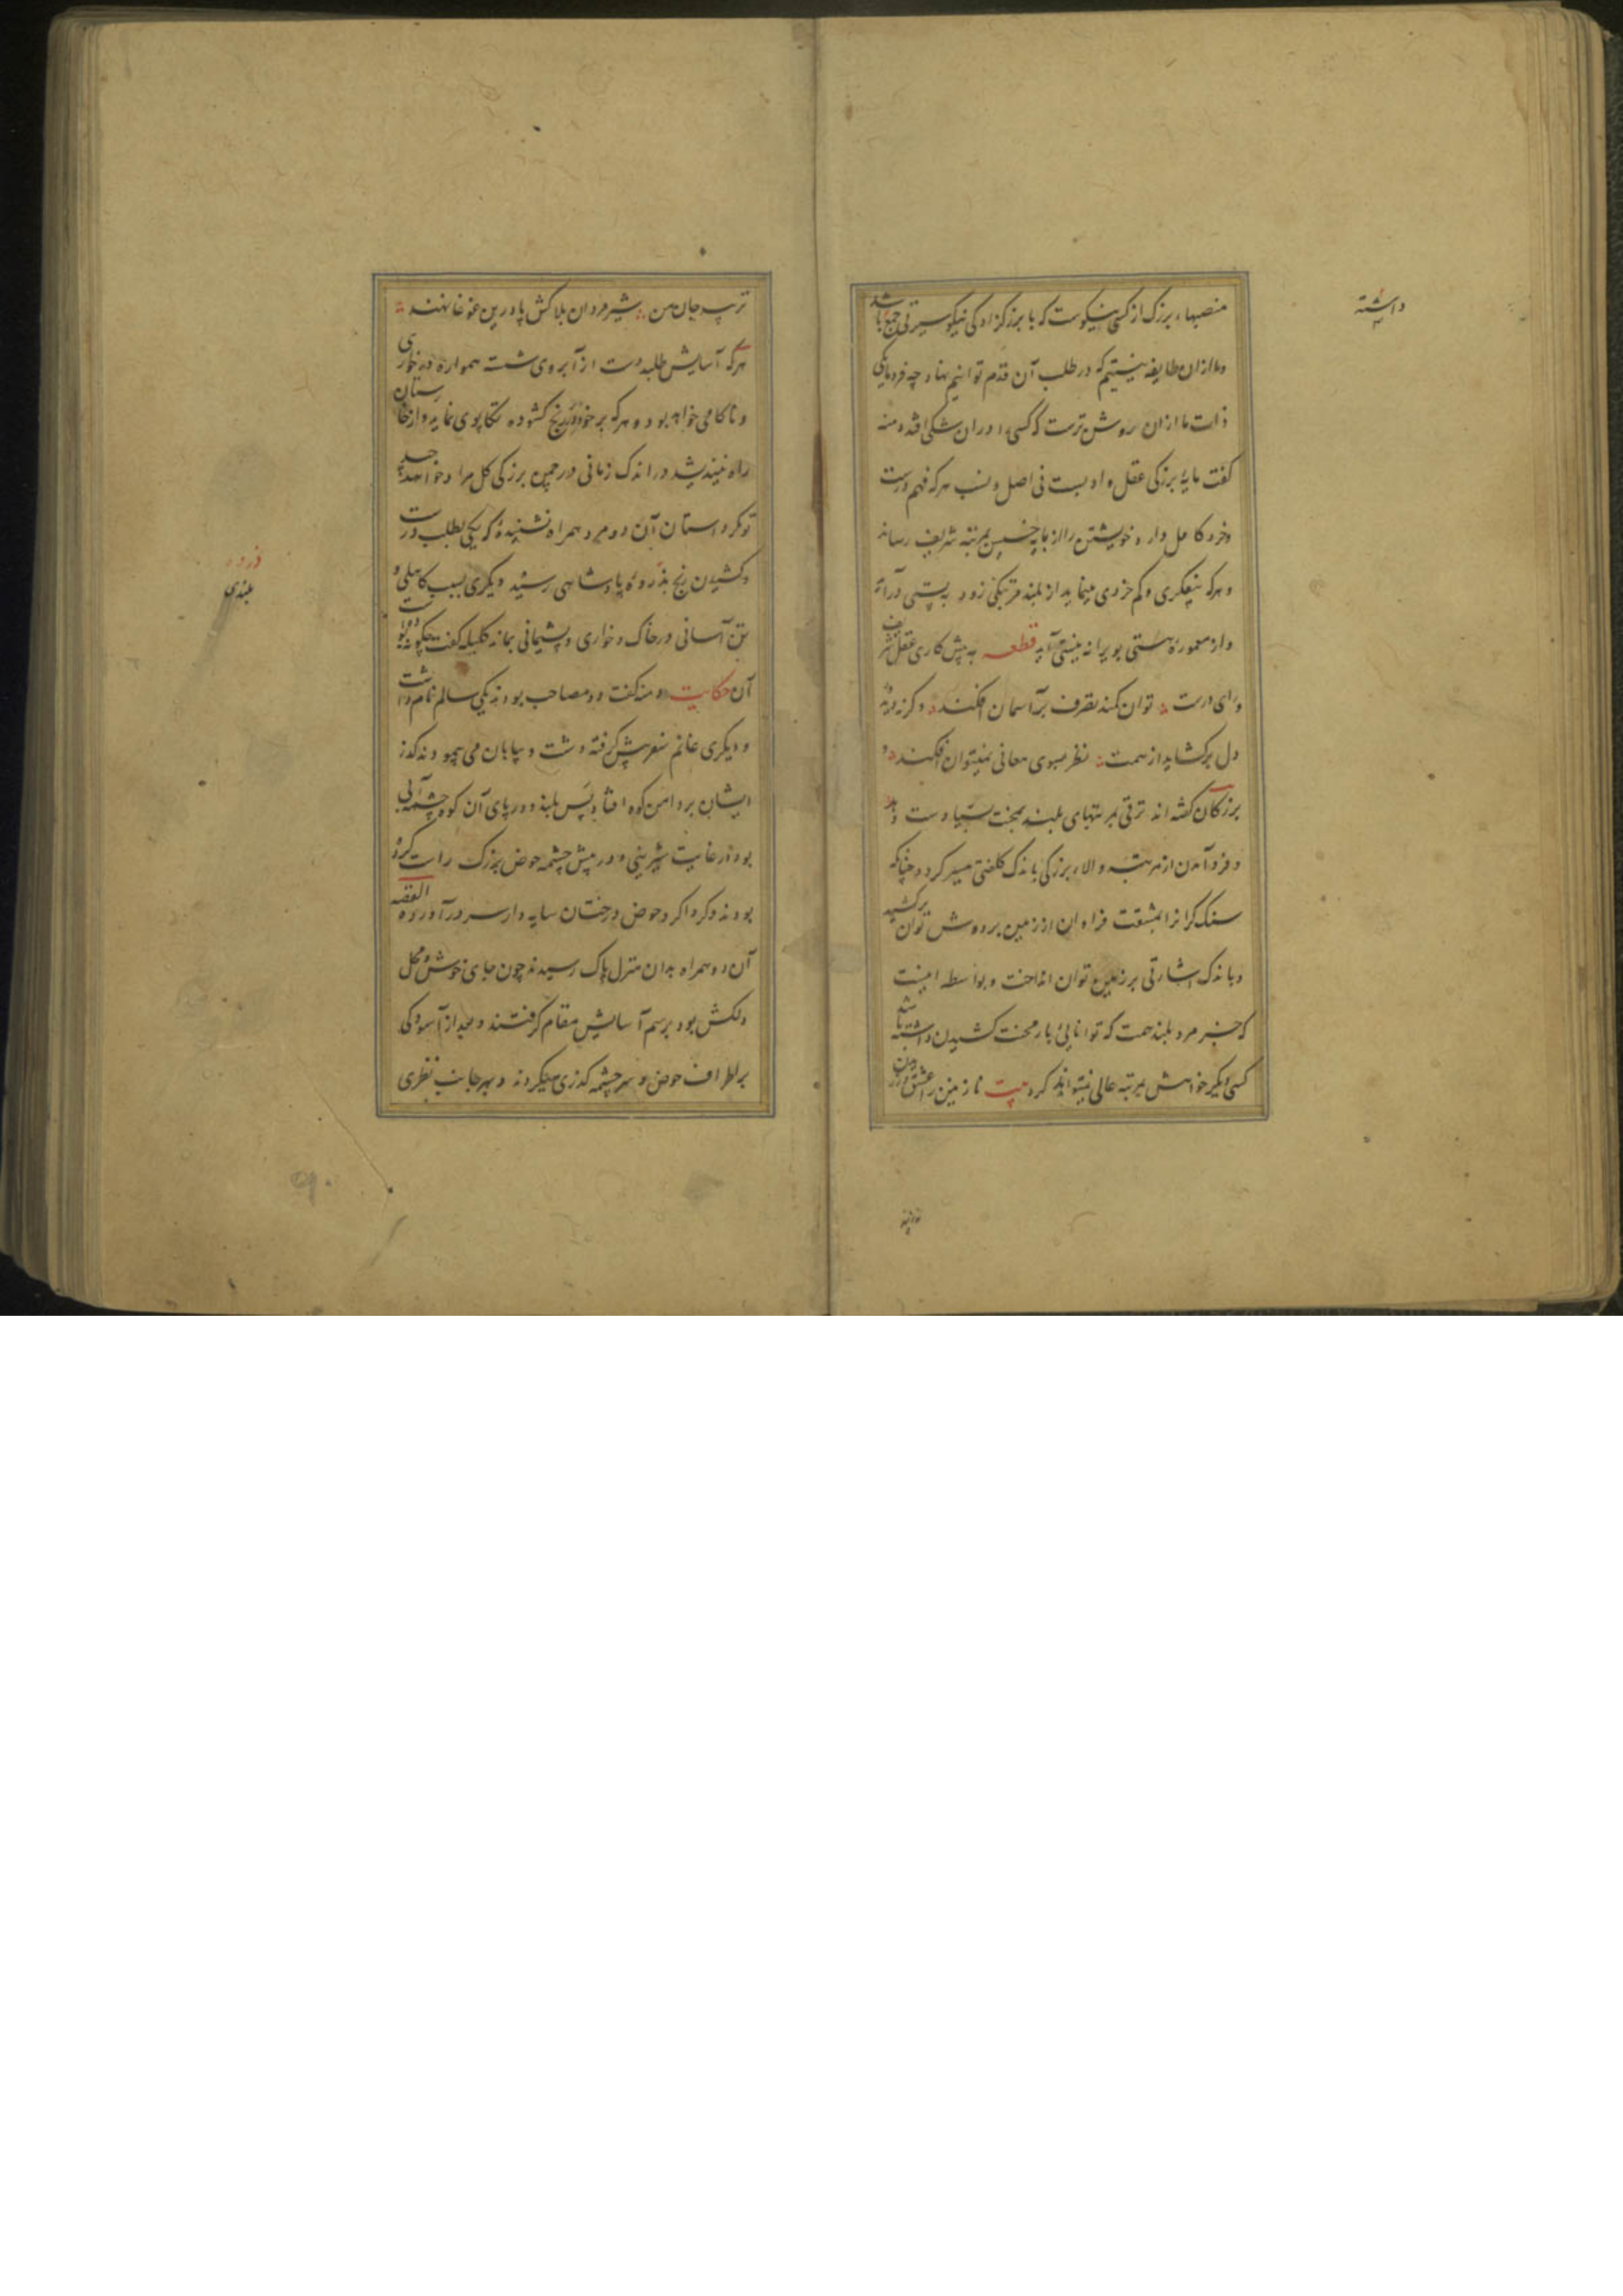 منصبهاء بزرک از کسی نیکوست که با بزرکزادکی نیکو سیرتی جمع باشد
و ما ازان طایفه نیستیم که در طلب آن قدم توانیم نهاد و چه فرومایکی
ذات ما ازان روشن ترست که کسی را دران شکی افتد دمنه
کفت مایهٔ بزرکی عقل و ادبست نی اصل و نسب هرکه فهم درست
و خرد کامل دارد خویشتن را از پایه خسیس بمرتبه شریف رساند
و هرکه بیفکری و کم خردی مینماید از بلند مرتبکی زود به پستی درآید
و از معمورهٔ هستی بویرانه نیستی آید قطعه به پیش کاری عقل شریف
و رای درست توان کمند تصرف بر آسمان افکند وکرنه دیدهٔ
دل برکشاید از همت نظر بسوی معانی نمیتوان افکند و
بزرکان کفته اند ترقی بمرتبهای بلند بمحنت بسیار دست دهد
و فرود آمدن از مرتبه والاء بزرکی باندک کلفتی میسر کردد چنانکه
سنک کرانرا بمشقت فراوان از زمین بر دوش توان برکشید
و باندک اشارتی بر زمین توان انداخت و بواسطه اینست
که جز مرد بلند همت که توانایی بار محنت کشیدن داشته باشد
کسی دیکر خواهش مرتبه عالی نیتواند کرد بیت نازنین را عشق ورزیدن
داشته
توانند
نزیبد جان من شیرمردان بلاکش پا درین غوغا نهند
هرکه آسایش طلبد دست از آبروی شست همواره در خواری
و ناکامی خواهد بود و هرکه بر خود در رنج کشوده تکاپوی نماید و از خارستان
راه نیندیشد در اندک زمانی در چمن بزرکی کل مراد خواهد چید
تو مکر داستان آن دو مرد همراه نشنیدهٔ که یکی بطلب درست
و کشیدن رنج بذروهٔ پادشاهی رسید و دیکری بسبب کاهلی و
تن آسانی در خاک و خواری و پشیمانی بماند کلیله کفت چکونه بود
آن حکایت دمنه کفت دو مصاحب بودند یکی سالم نام داشت
و دیکری غانم سفر پیش کرفته دشت و بیابان می پیمودند کذر
ایشان بر دامن کوه افتاد بس بلند و در پای آن کوه چشمه آبی
بود در غایت شیرینی و در پیش چشمه حوض بزرک راست کرده
بودند و کرداکرد حوض درختان سایه دار سر درآورده القصه
آن دو همراه بدان منزل پاک رسیدند چون جای خوش و محل
دلکش بود برسم آسایش مقام کرفتند و بعد از آسودکی
بر اطراف حوض و سر چشمه کذری میکردند و بهر جانب نظری
ذروه
بلندی